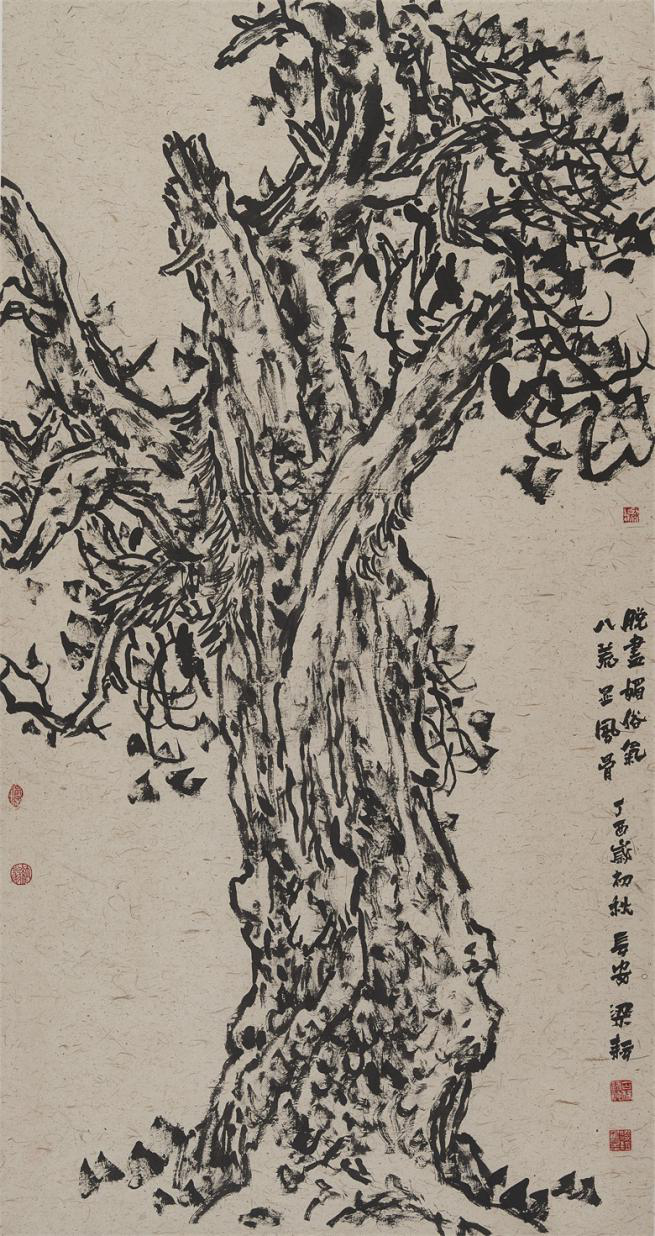 脱盡媚俗氣
八荒显風骨
丁酉歲初秋 長安 梁耘